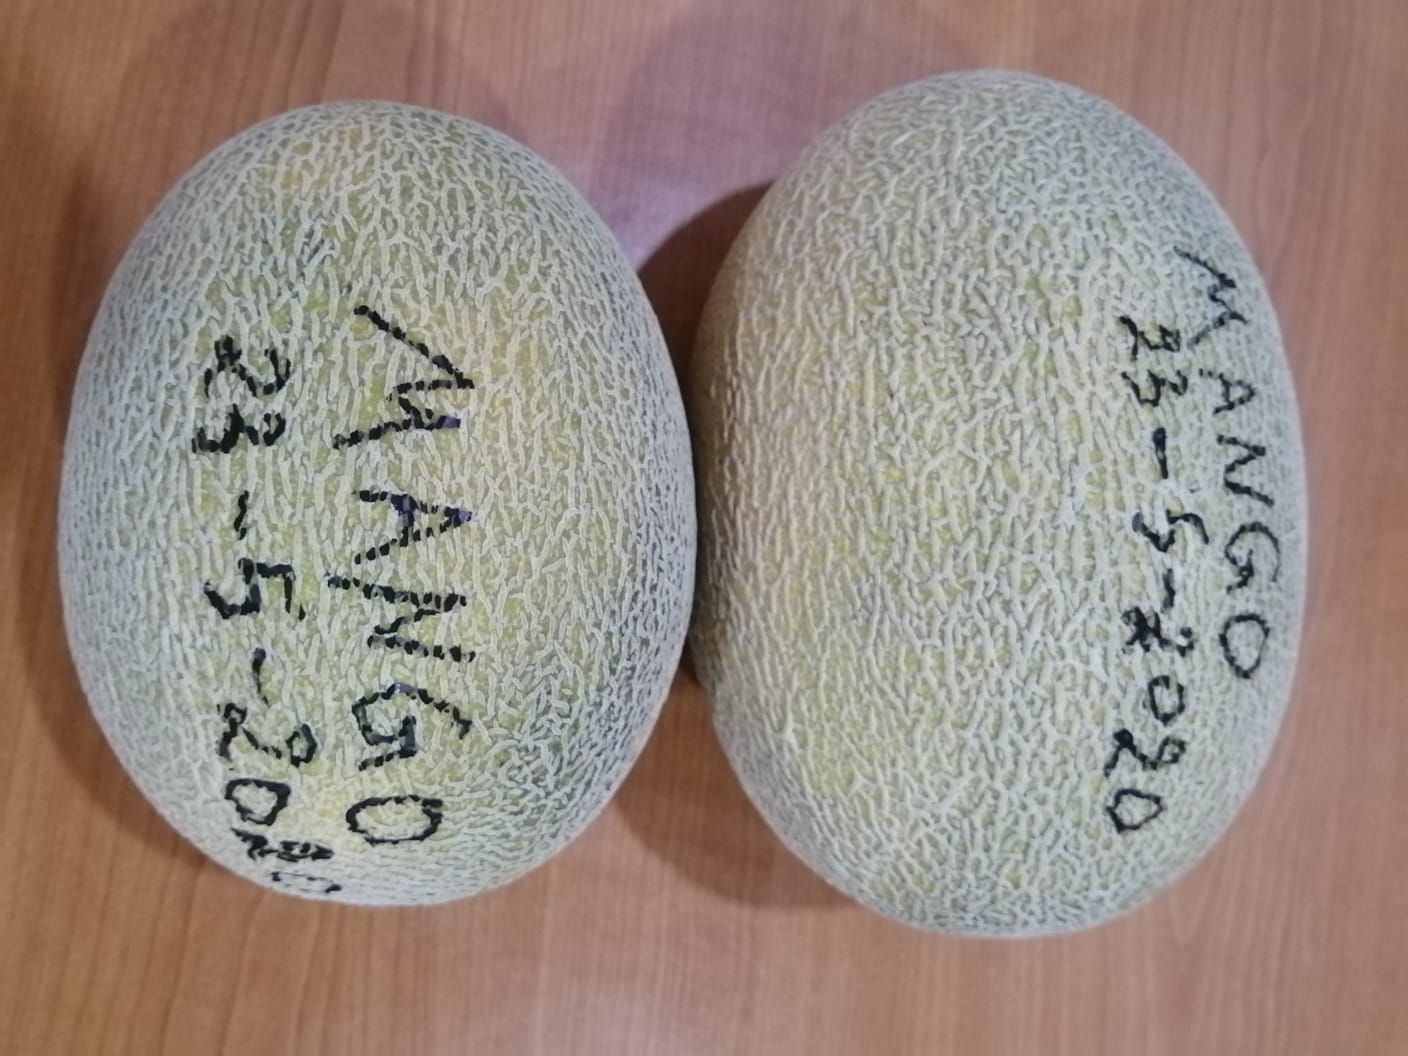 MANGO
23-5-2020
MANGO
23-5-2020